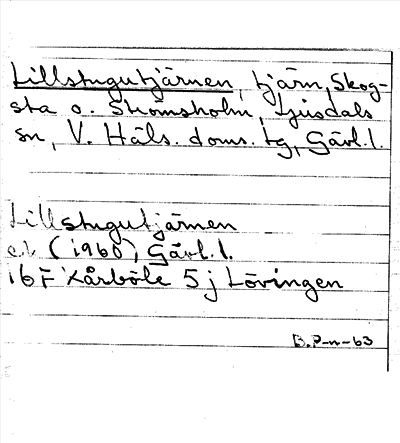 Lillstugutjärnen, tjärn, Skog-
sta o. Strömsholm, Ljusdals
sn, V. Häls. doms. tg, Gävl. l.
Lillstugutjärnen
e.k (1960), Gävl. l.
16 F Kårböle 5 j Lövingen
B. P-n-63